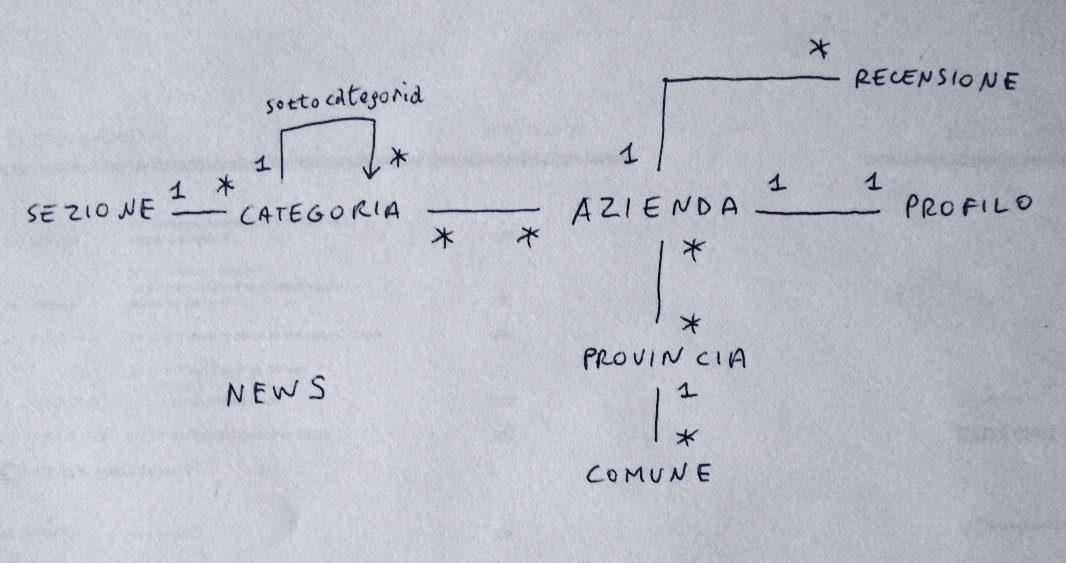 * RECENSIONE
sottocategoria
1 * 1
SEZIONE 1 * CATEGORIA * * AZIENDA 1 1 PROFILO
*
*
PROVINCIA
NEWS 1
*
COMUNE